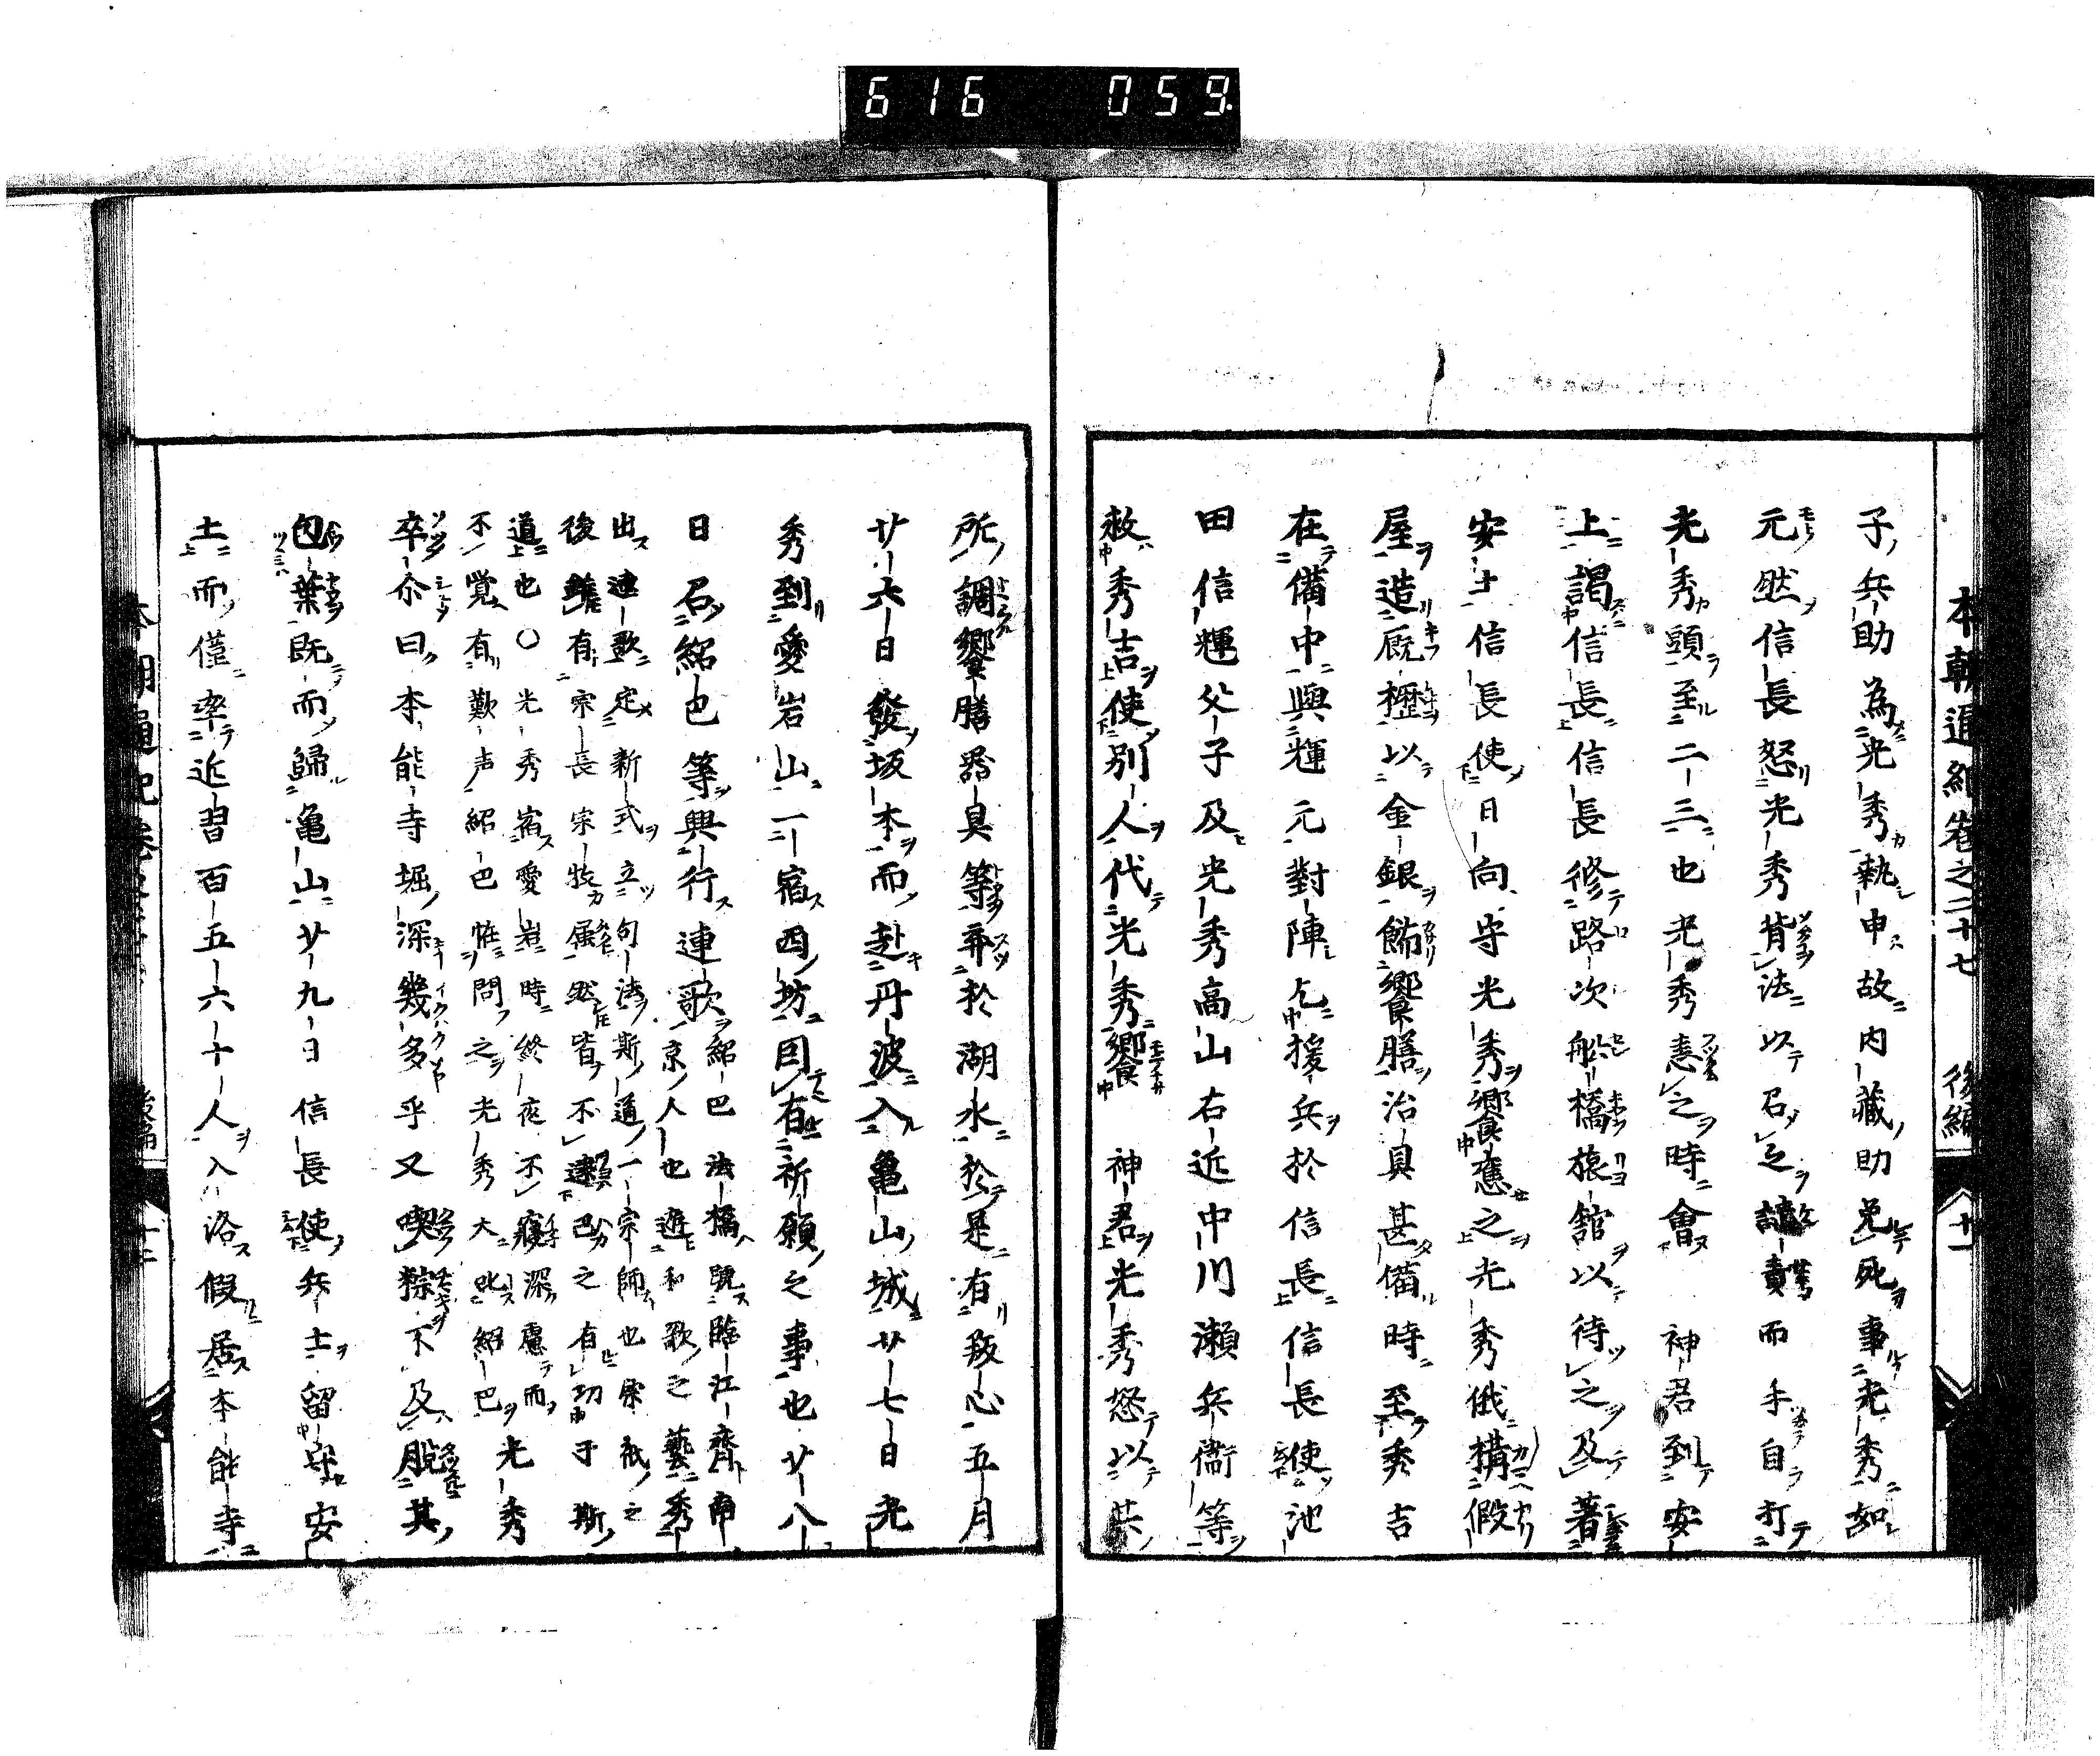 616 059
本朝通紀卷之二十七 後編 十一
子兵助為光秀執申故内藏助免死事光秀如
元然信長怒光秀背法以召之譴責而手自打
光秀頭至二三也光秀恚之時會 神君到安
上謁信長信長修路次船橋旅舘以待之及著
安土信長使日向守光秀饗應之光秀俄構假
屋造厩櫪以金銀飾饗膳治具甚備時至秀吉
在備中與輝元對陣乞援兵於信長信長使池
田信輝父子及光秀高山右近中川瀬兵衞等
救秀吉使別人代光秀饗 神君光秀怒以其
所調饗膳器具等弃於湖水於是有叛心五月
廿六日發坂本而赴丹波入亀山城廿七日光
秀到愛岩山一宿西坊因有祈願之事也廿八
日召紹巴等興行連歌
紹巴法橋號臨江齋南
京人也遊和歌之藝秀
出連歌定新式立句法斯道一宗師也宗祇之
後雖有宗長宗牧雖然皆不逮巴之有功于斯
道也〇光秀宿愛岩時終夜不寝深慮而
不覺有歎声紹巴恠問之光秀大叱紹巴
光秀
卒尒曰本能寺堀深幾多乎又喫粽不及脱其
包葉既而歸亀山廿九日信長使兵士留守安
土而僅率近習百五六十人入洛假居本能寺